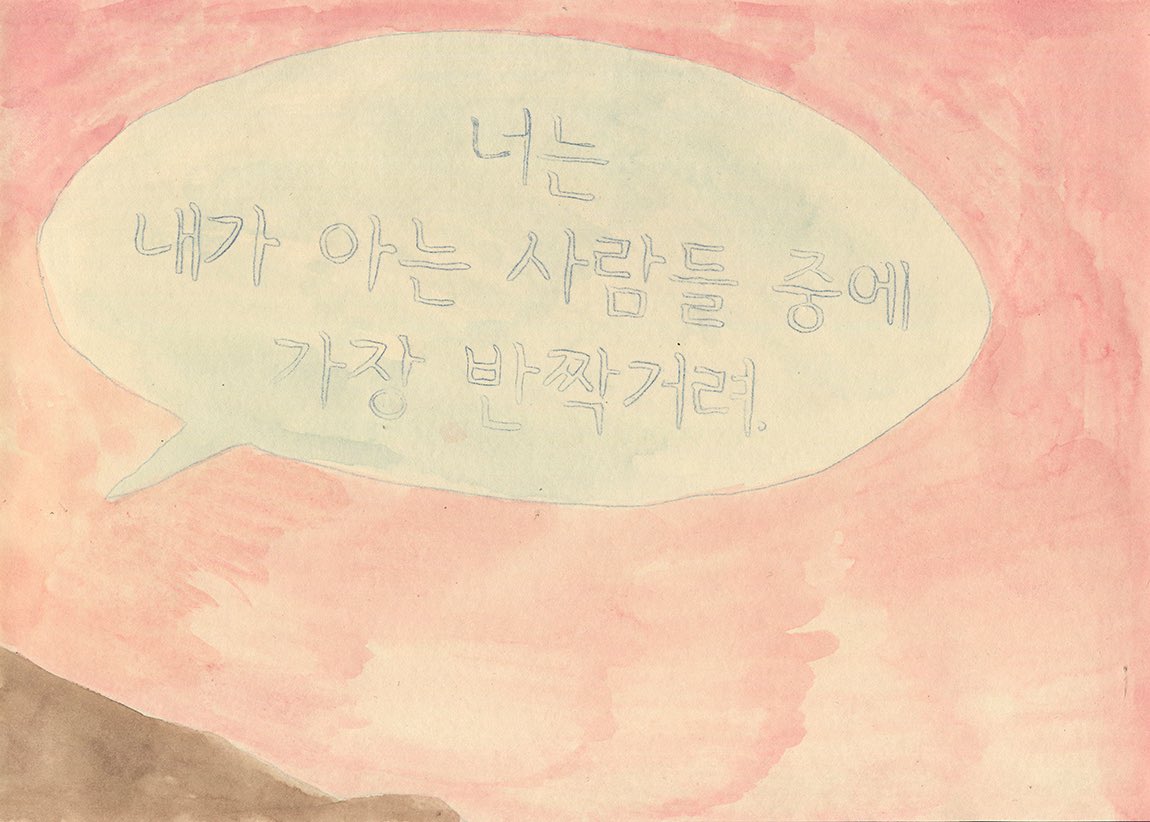 너는
내가 아는 사람들 중에
가장 반짝거려.